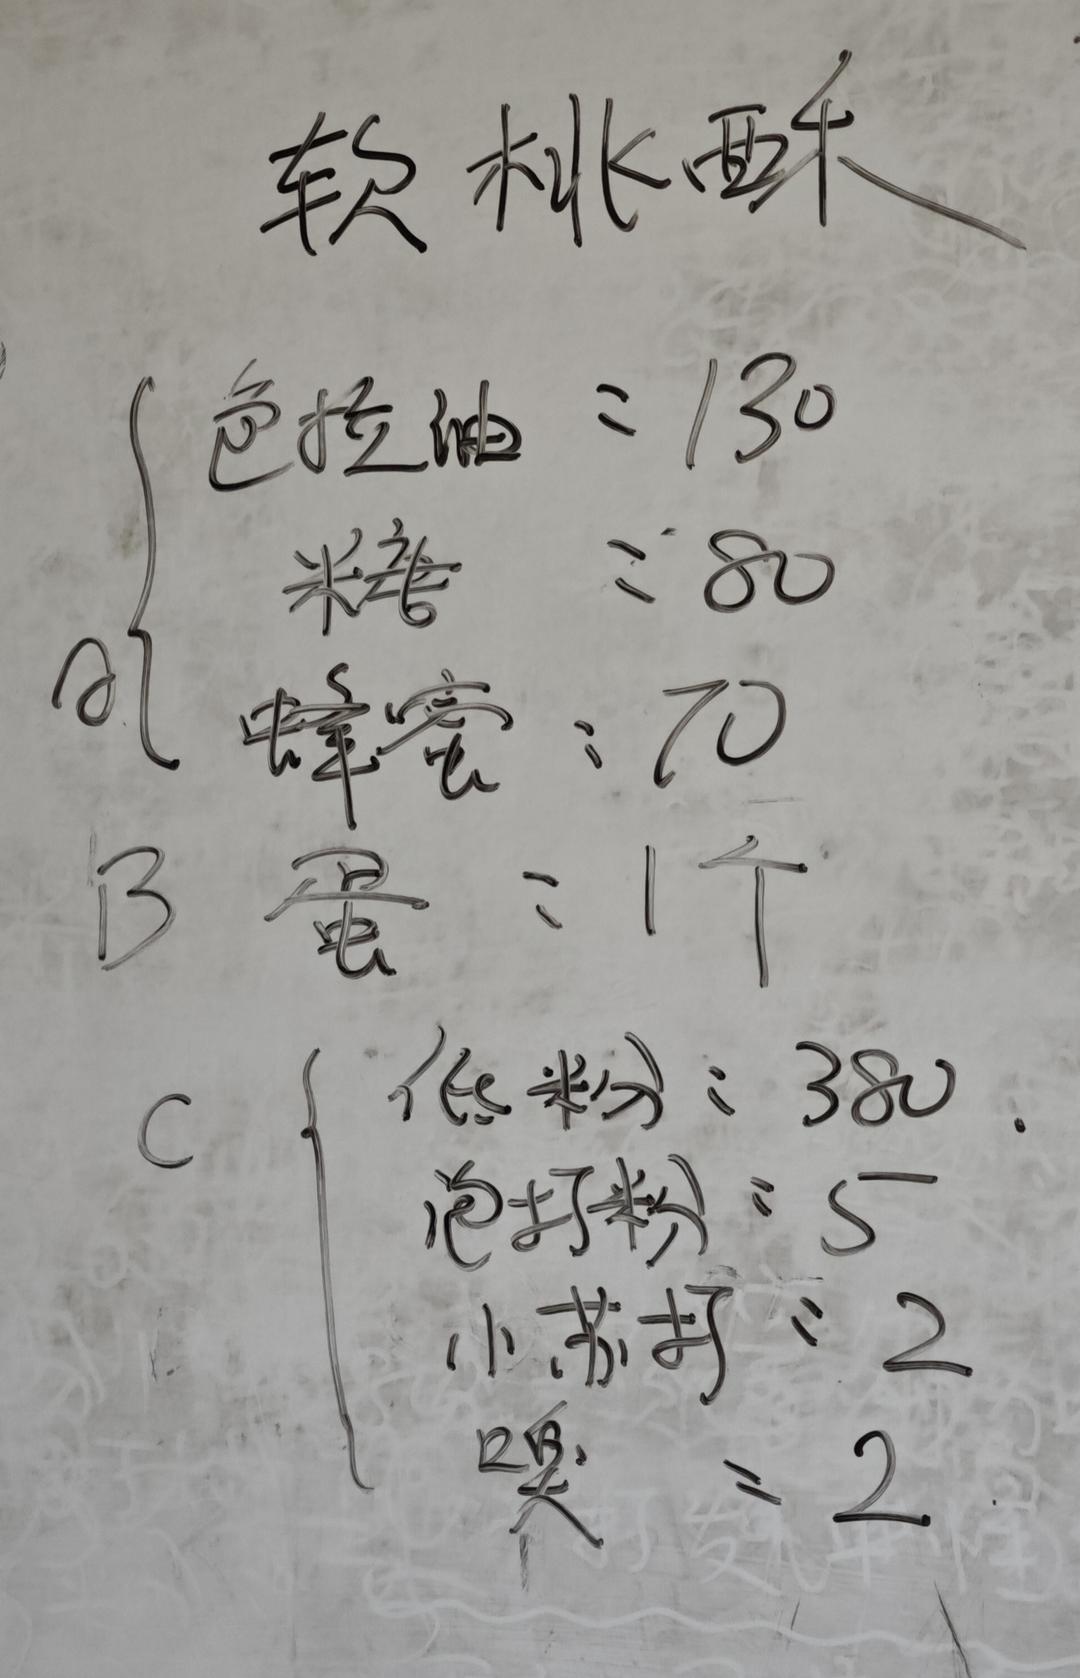 软桃酥
A { 色拉油:130
糖:80
蜂蜜:70
B 蛋:1个
C { 低粉:380
泡打粉:5
小苏打:2
臭:2